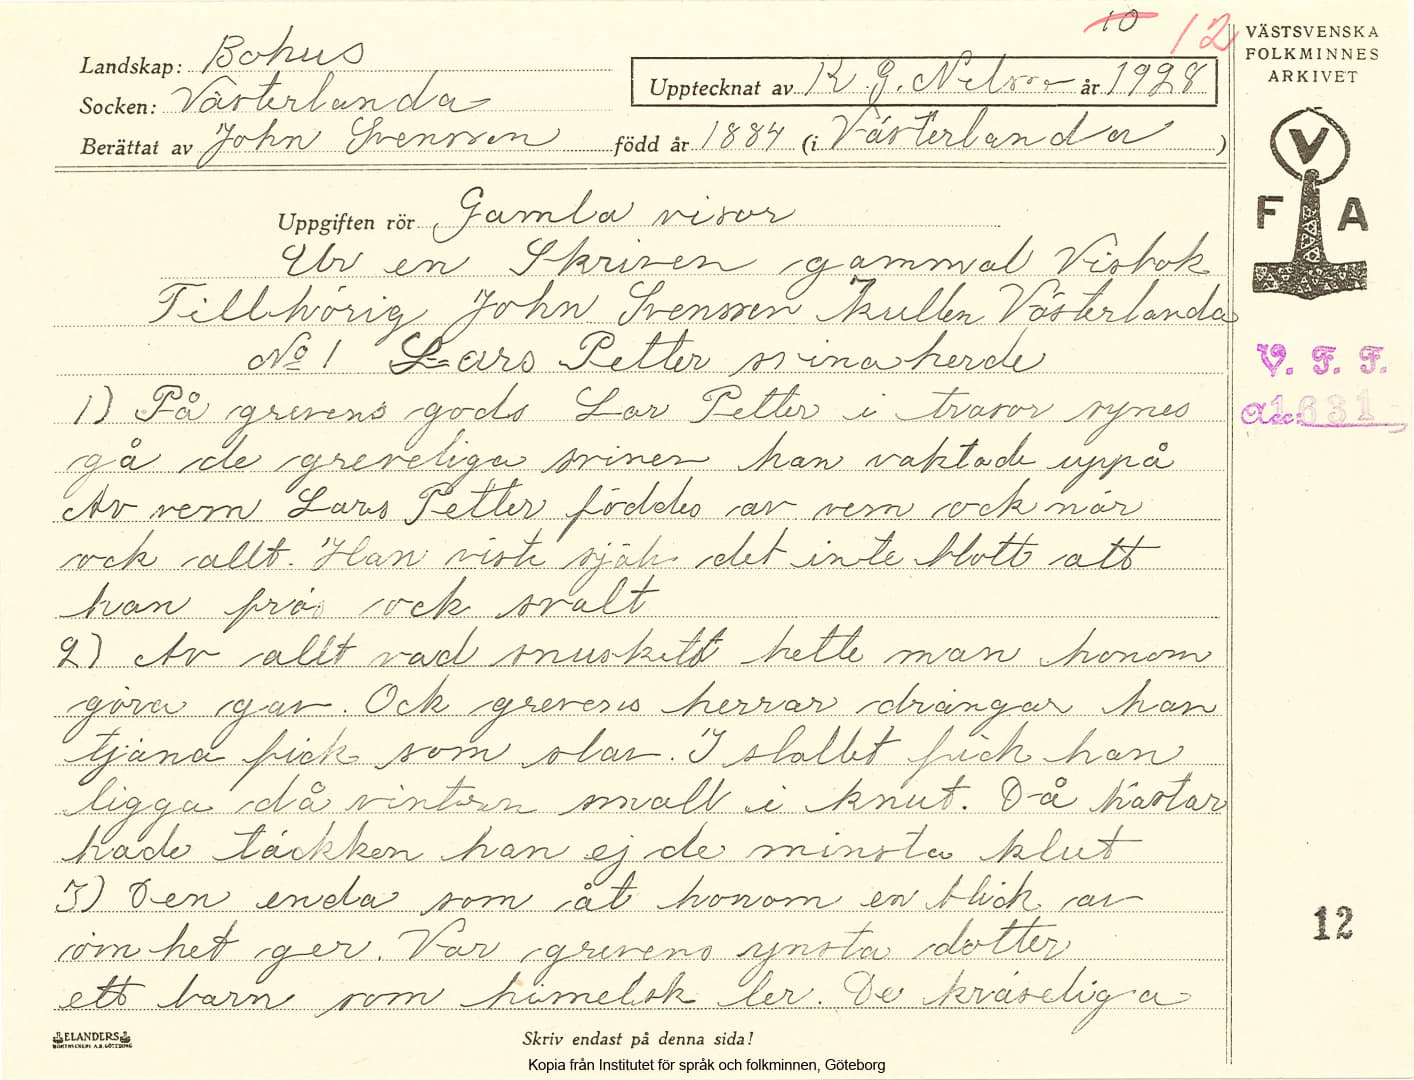 10 12
VÄSTSVENSKA
FOLKMINNES
ARKIVET
Landskap: Bohus
Socken: Västerlanda
Upptecknat av K. G. Nelson år 1928
Berättat av John Svenssen född år 1884 (i Västerlanda)
V
F A
Uppgiften rör Gamla visor
Ur en Skriven gammal Visbok
Tillhörig John Svenssen Kullen Västerlanda
No 1 Lars Petter svinaherde
V. F. F.
Acc: 1631
1) På grevens gods Lar Petter i trasor synes
gå de greveliga svinen han vaktade uppå
Av vem Lars Petter föddes av vem ock når
ock allt. Han viste själv det inte blott att
han frös ock svalt
2) Av allt vad snuskitt hette man honom
göra gav. Ock grevens herrar drängar han
tjäna fick som slav. I stallet fick han
ligga då vintren small i knut. Då hästar
hade täckken han ej de minsta klut
3) Den enda som åt honom en blick av
ömhet ger. Var grevens ynsta dotter
ett barn som himelsk ler. De kräseliga
12
ELANDERS
Skriv endast på denna sida!
Kopia från Institutet för språk och folkminnen, Göteborg